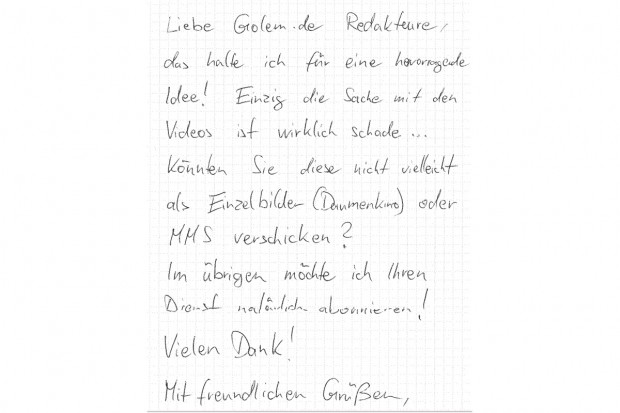 Liebe Golem.de Redakteure,
das halte ich für eine hevorragende
Idee! Einzig die Sache mit den
Videos ist wirklich schade...
Könnten Sie diese nicht vielleicht
als Einzelbilder (Daumenkino) oder
MMS verschicken?
Im übrigen möchte ich Ihren
Dienst natürlich abonnieren!
Vielen Dank!
Mit freundlichen Grüßen,